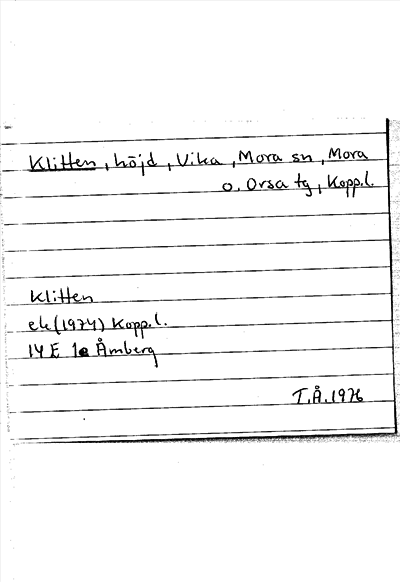 Klitten, höjd, Vika, Mora sn, Mora
o. Orsa tg, Kopp.l.
Klitten
ek (1974) Kopp.l.
14 E 1e Åmberg
T.Å. 1976